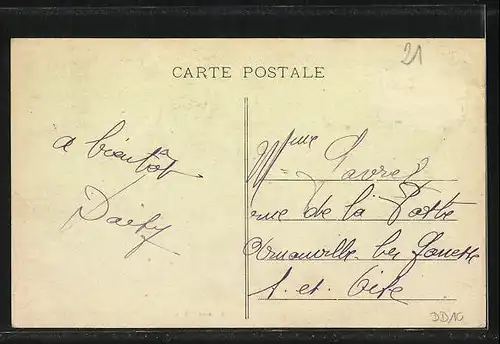 21
CARTE POSTALE
a bientôt
Daisy
Mme Favrel
rue de la Poste
Arnouville les Gonesse
S. et. Oise
DD10